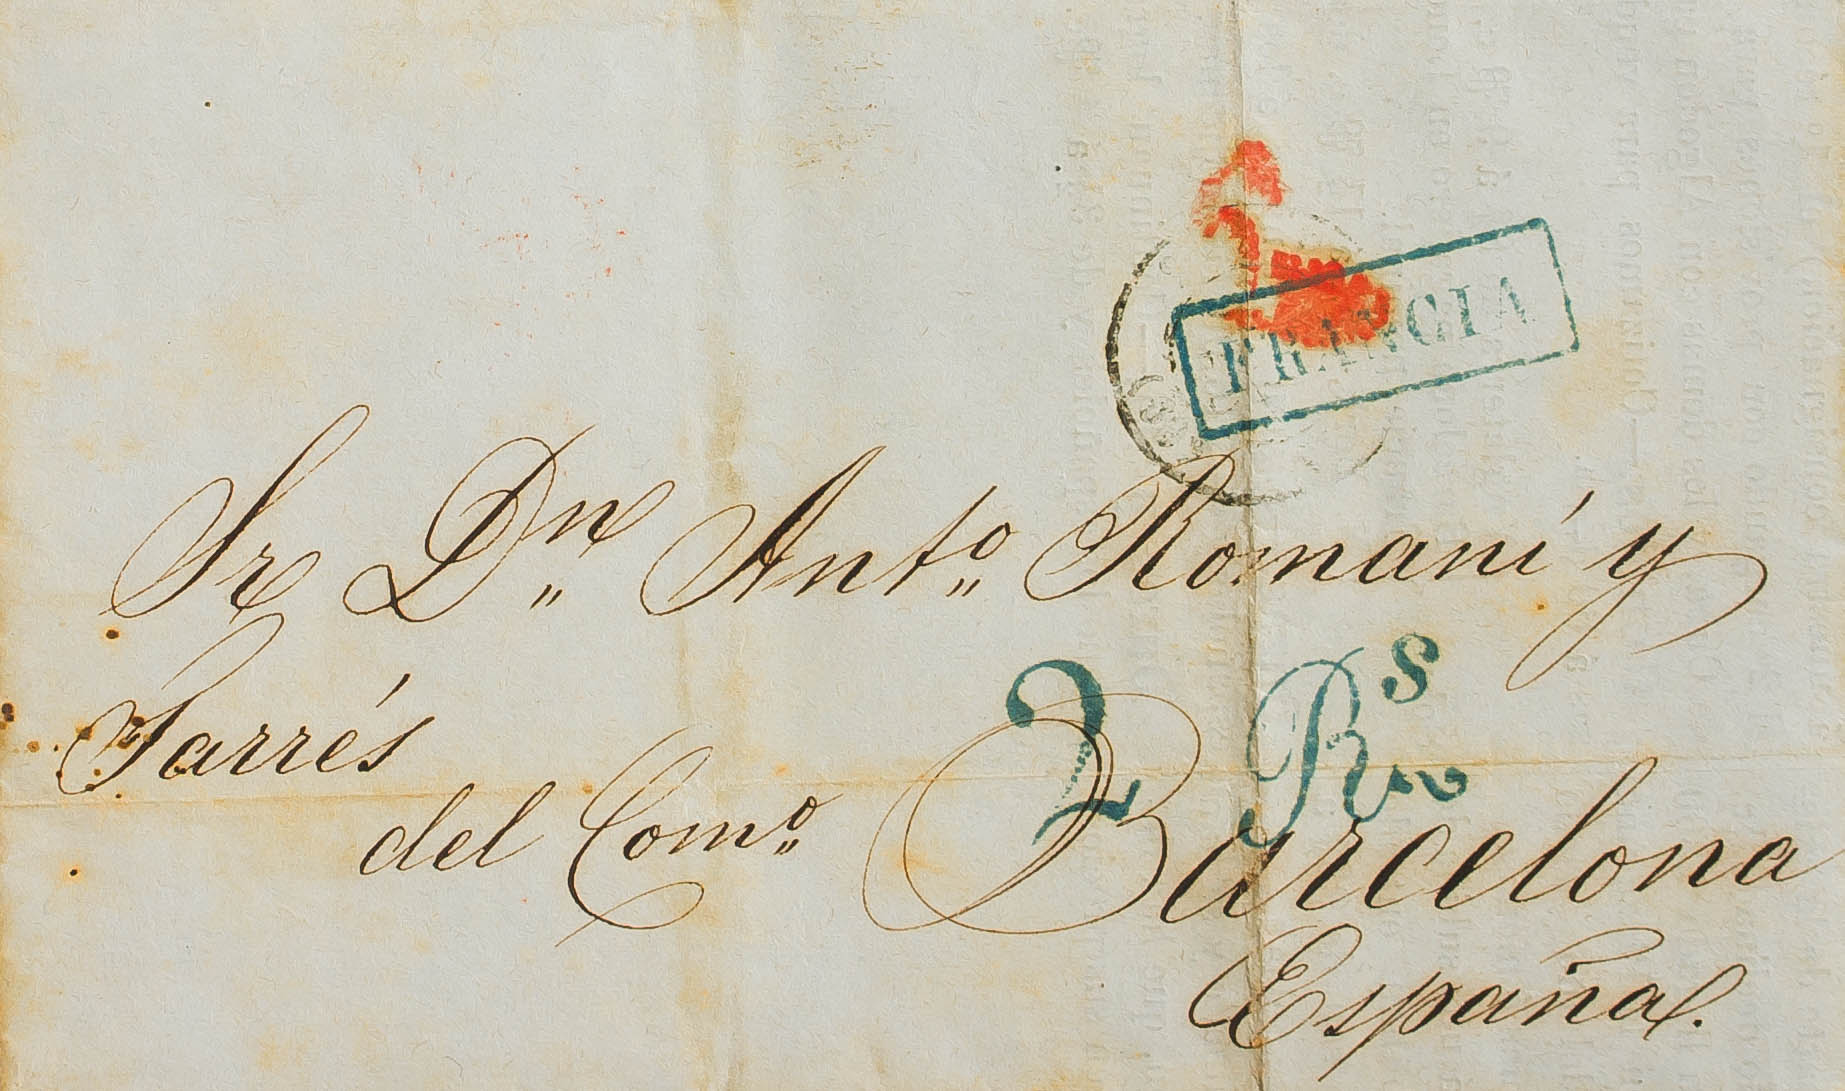 FRANCIA
Sr Dn Anto Romaní y
Tarrés
2 Rs
del Como Barcelona
España.